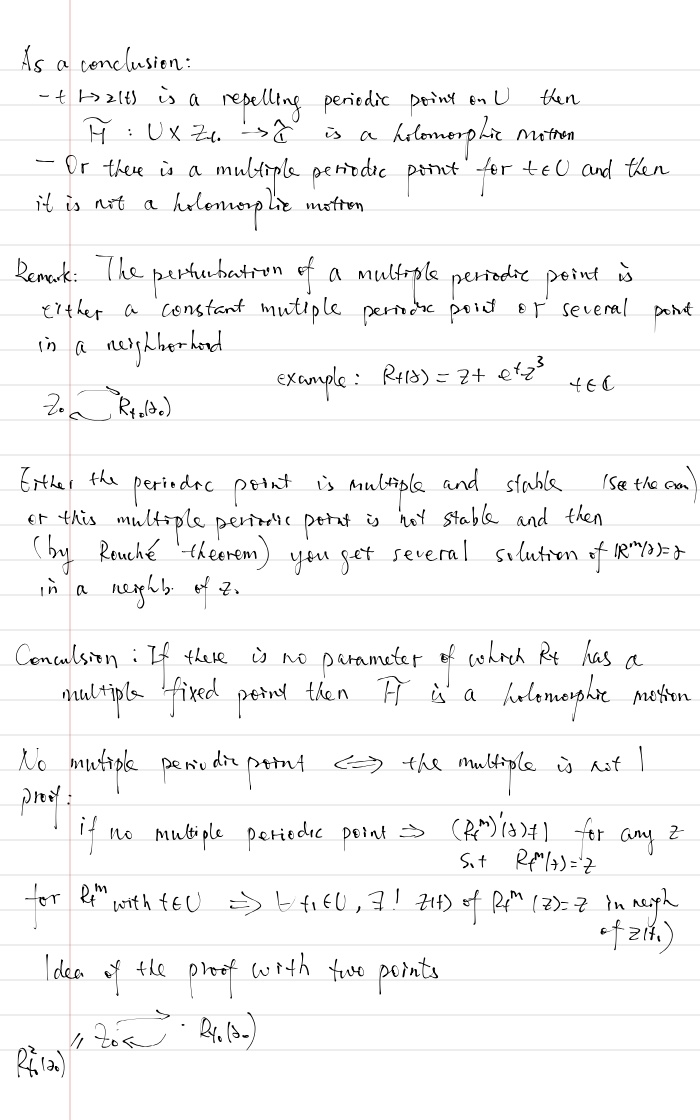 As a conclusion:
- t ↦ z(t) is a repelling periodic point on U then
H̃ : U × Z_t. → Ĉ is a holomorphic motion
- Or there is a multiple periodic point for t ∈ U and then
it is not a holomorphic motion
Remark: The perturbation of a multiple periodic point is
either a constant mutiple periodic point or several point
in a neighborhood
example: Rt(z) = z + e^t z^3 t ∈ ℂ
Z₀ R_t₀(z₀)
Either the periodic point is multiple and stable (See the exm)
or this multiple periodic point is not stable and then
(by Rouché theorem) you get several solution of R^m(z)=z
in a neighb. of z₀
Conculsion : If there is no parameter of which Rt has a
multiple fixed point then H̃ is a holomorphic motion
No mutiple periodic point ⟺ the multiple is not 1
proof:
if no multiple periodic point ⇒ (Rt^m)'(z) ≠ 1 for any z
s.t Rt^m(z) = z
for Rt^m with t ∈ U ⇒ ∀ t₁ ∈ U, ∃! z(t) of Rt^m (z) = z in neigh
of z(t₁)
Idea of the proof with two points
" Z₀ · R_t₀(z₀)
R²_t₀(z₀)